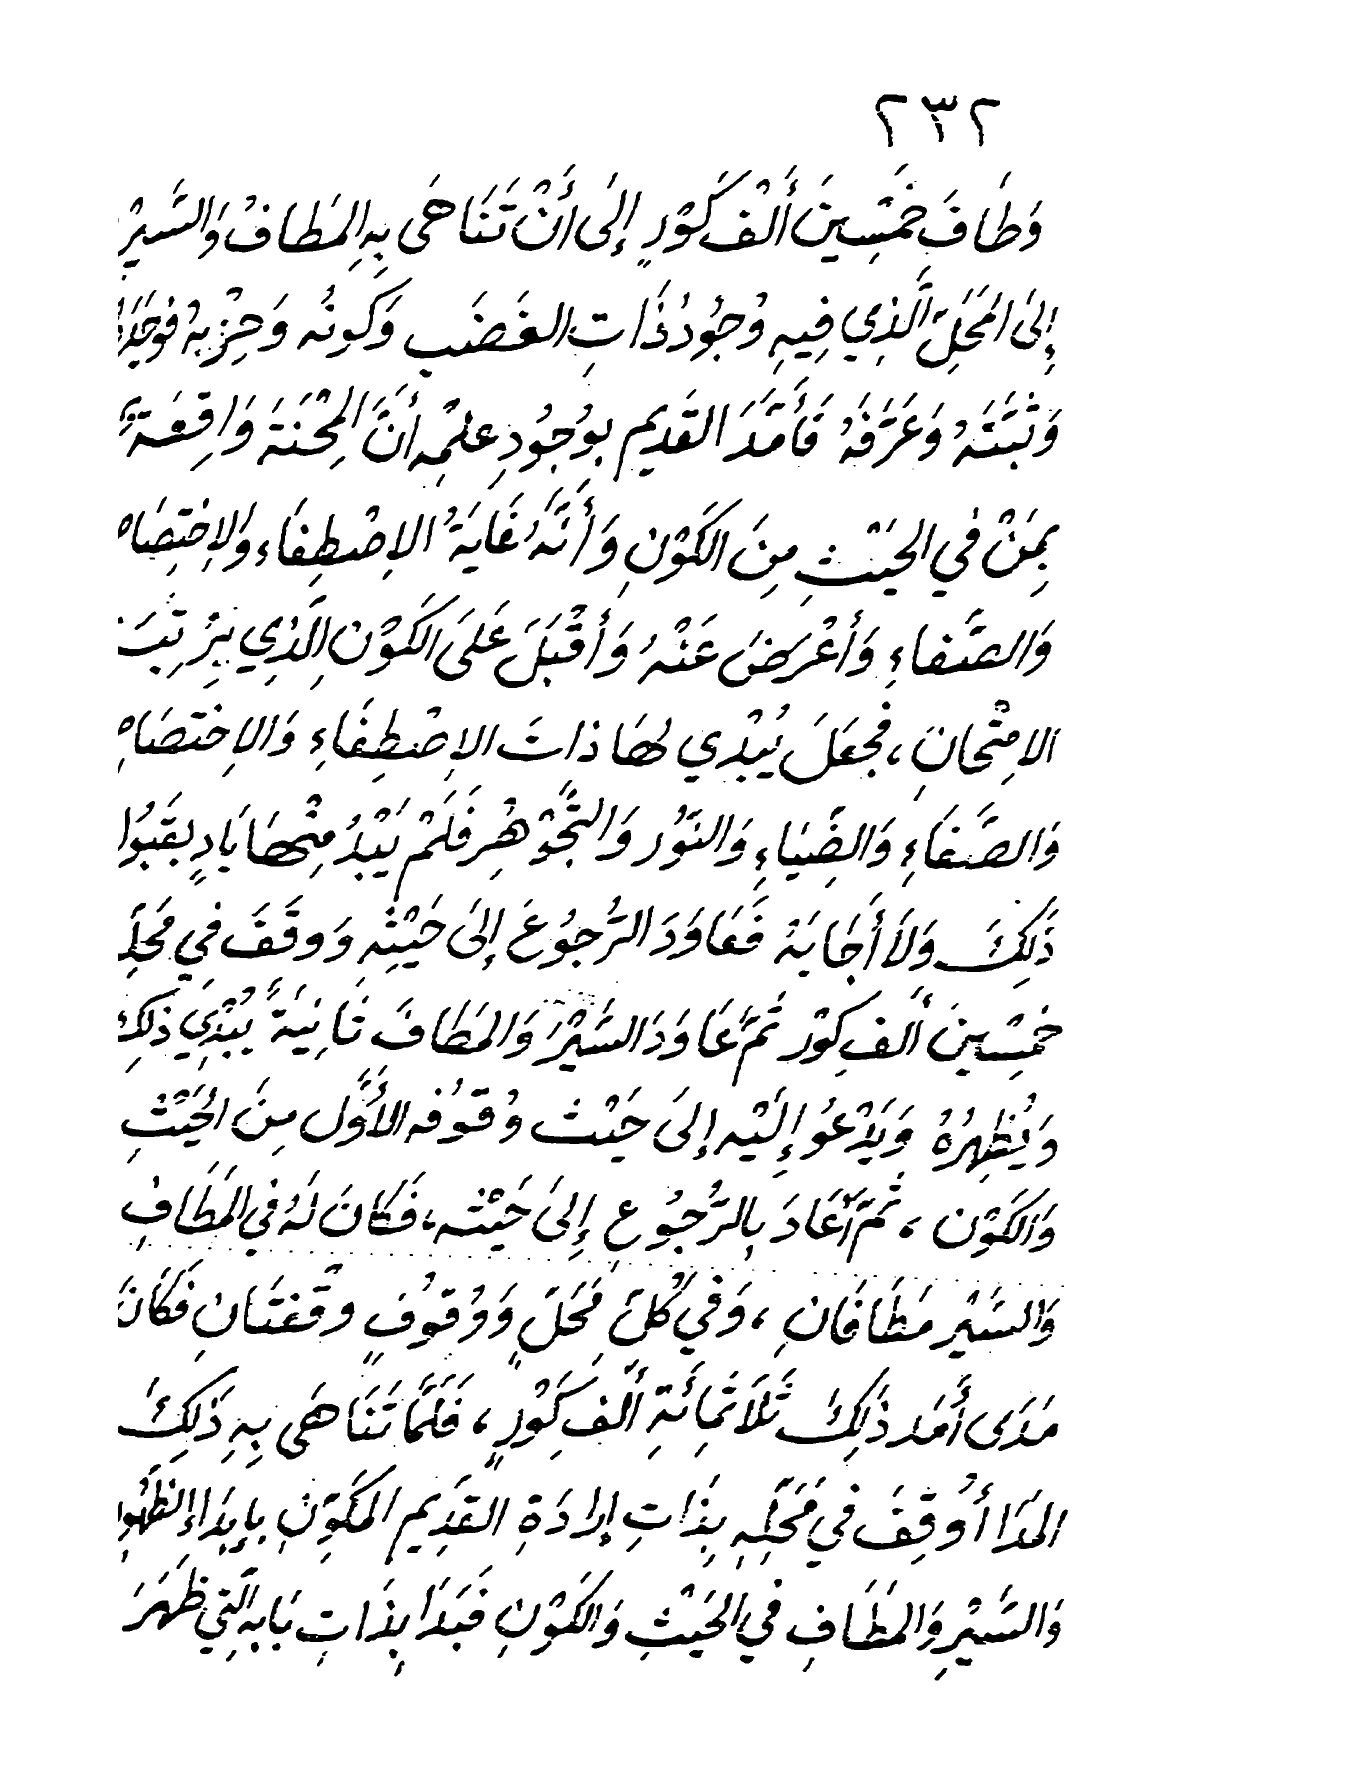 ٢٣٢
وَطَافَ خَمْسِينَ أَلْف كَوْرٍ إِلَى أَنْ تَنَاهَى بِهِ المَطَافُ وَالسَّيْرُ
إِلَى المَحَلِّ الَّذِي فِيهِ وُجُودُ ذَاتِ الغَضَبِ وَكَونُه وَحِزْبهُ
وَثَبَّتَهُ وَعَرَّفَهُ فَأَمَدَّ القَديم بِوُجُودِ عِلْمِه أَنَّ المِحْنَةَ وَاقِعَةٌ
بِمَنْ فِي الحَيْثِ مِنَ الكَوْنِ وَأَنَّهُ غَايَةُ الاِصْطِفَاء وَالاِختِصَاص
وَالصَّفاءِ وَأَعْرَضَ عَنْهُ وَأَقْبَلَ عَلَى الكَوْنِ الَّذِي
الامْتِحانِ، فَجعَلَ يُبْدِي لهَا ذاتَ الاِصْطِفَاءِ وَالاِختصَاصِ
وَالصَّفَاءِ وَالضِّيَاءِ وَالنّوُر وَالتَّجَوْهُرِ فَلَمْ يَبْدُ مِنْهَا بَادٍ بقَبُول
ذَلِكَ وَلاَ أَجَابَهُ فَعَاوَدَ الرُّجوُعَ إِلىَ حَيْثِهِ وَوقَفَ فِي مَحَلِّ
خمْسِينَ أَلفِ كَوْر ثُمَّ عَاوَدَ السَّيْرَ وَالمَطَافَ ثَانِيَةً يُبْدِي ذلِكَ
وَيُظهِرُهُ وَيَدْعُو إِلَيْهِ إِلىَ حَيْث وُقوُفه الأَوَّل مِنَ الحَيْثِ
وَالكَوْن، ثُمَّ أَعَادَ بِالرُّجوُعِ إِلىَ حَيْثه، فَكَانَ لَهُ فِي المَطَافِ
وَالسَّيْر مَطَافَانِ، وَفي كُلِّ مَحَلٍّ وَوُقوُفٍ وقْفَتَانِ فَكَانَ
مَدَى أَمَد ذَلِكَ ثَلاَثَمِائَةِ أَلْفِ كَوْرٍ، فَلَمَّا تَنَاهَى بِهِ ذَلِكَ
المَدَا أُوقِفَ فِي مَحَلِّهِ بِذَاتِ إِرَادَةِ القَدِيم المكَوِّنِ بإِبدَاءِ الظُهُورِ
وَالسَّيْرِ وَالمَطَافِ فِي الحَيْثِ وَالكَوْنِ فَبَدَا بِذَاتِ بَابِهِ الَّتِي ظَهَرَ